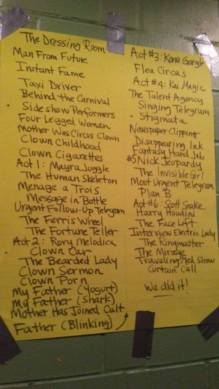 The Dressing Room
Man From Future
Instant Fame
Taxi Driver
Behind the Carnival
Sideshow Performers
Four Legged Women
Mother Was Circus Clown
Clown Childhood
Clown Cigarettes
Act 1: Magra Juggle
The Human Skeleton
Menage a Trois
Message in Bottle
Urgent Follow-Up Telegram
The Ferris Wheel
The Fortune Teller
Act 2: Rory Melodica
Clown Car
The Bearded Lady
Clown Sermon
Clown Porn
My Father (Yogurt)
My Father (Shark)
Mother Has Joined Cult
Father (Blinking)
Act #3: Kona Gargle
Flea Circus
Act #4: Kai Magic
The Talent Agency
Singing Telegram
Stigmata
Newspaper Clipping
Disappearing Ink
Fantasy Hand Job
#5 Nick Jeopardy
The Invisible Girl
Most Urgent Telegram
Plan B
Act #6: Scott Snake
Harry Houdini
The Face Left
Interview Electric Lady
The Ringmaster
The Mirage
Traveling Bed Show
Curtain Call
We did it!